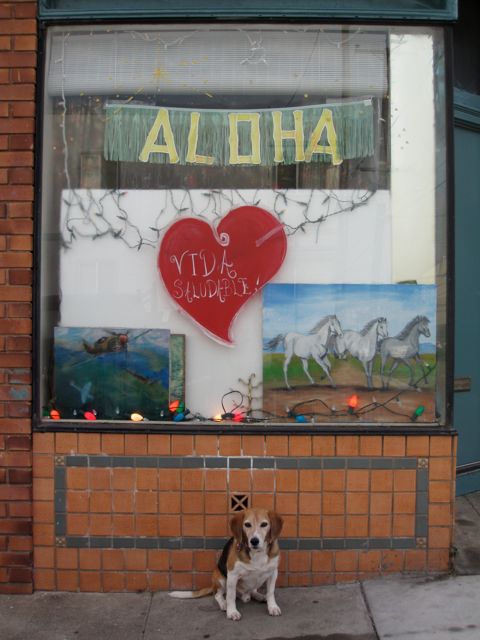 ALOHA
VIDA
SALUDABLE!